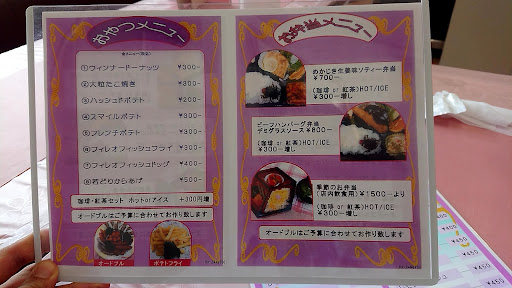 おやつメニュー
①ウィンナードーナッツ ¥300-
②大粒たこ焼き ¥300-
③ハッシュドポテト ¥200-
④スマイルポテト ¥300-
⑤フレンチポテト ¥300-
⑥フィレオフィッシュフライ ¥300-
⑦フィレオフィッシュドッグ ¥400-
⑧若どりからあげ ¥500-
珈琲・紅茶セット ホットorアイス +300円増
オードブルはご予算に合わせてお作り致します
オードブル
ポテトフライ
お弁当メニュー
めかじき生姜味ソティー弁当
¥700-
(珈琲 or 紅茶)HOT/ICE
¥300-増し
ビーフハンバーグ弁当
デミグラスソース ¥800-
(珈琲 or 紅茶)HOT/ICE
¥300-増し
季節のお弁当
(店内飲食用)¥1500-より
(珈琲 or 紅茶)HOT/ICE
¥300-増し
オードブルはご予算に合わせてお作り致します
¥400
¥450
¥450
¥450